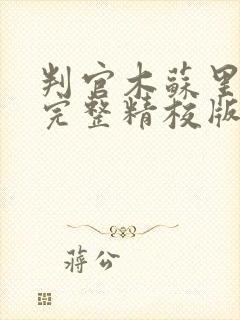 判官木蘇里
完整精校版
蔣公